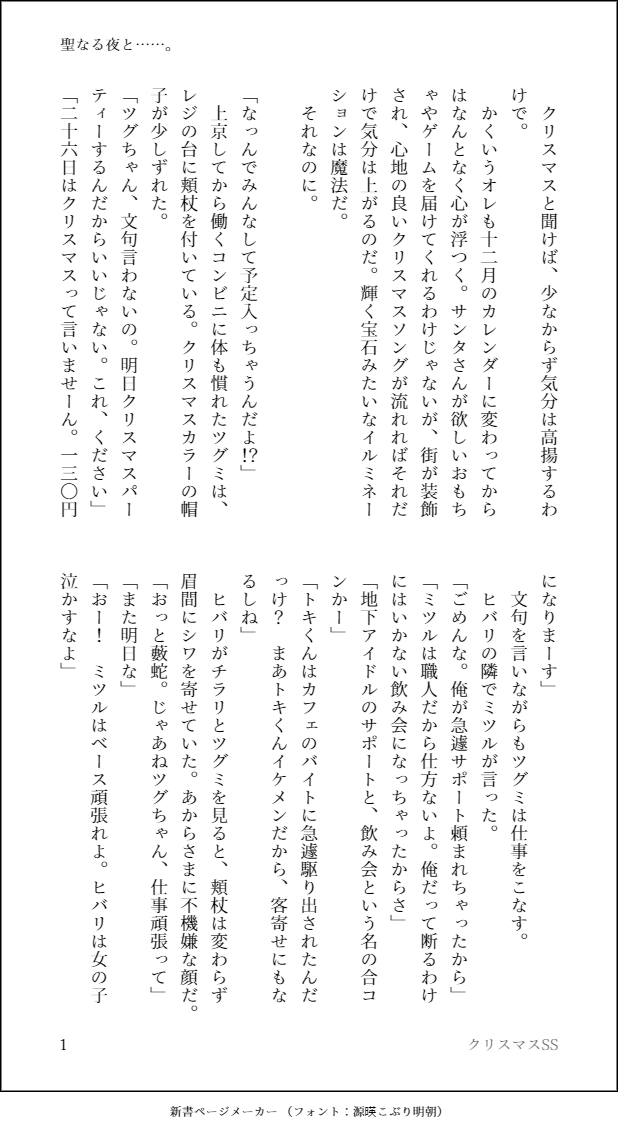 聖なる夜と……。
　クリスマスと聞けば、少なからず気分は高揚するわ
けで。
　かくいうオレも十二月のカレンダーに変わってから
はなんとなく心が浮つく。サンタさんが欲しいおもち
ゃやゲームを届けてくれるわけじゃないが、街が装飾
され、心地の良いクリスマスソングが流れればそれだ
けで気分は上がるのだ。輝く宝石みたいなイルミネー
ションは魔法だ。
　それなのに。
「なっんでみんなして予定入っちゃうんだよ!?」
　上京してから働くコンビニに体も慣れたツグミは、
レジの台に頬杖を付いている。クリスマスカラーの帽
子が少しずれた。
「ツグちゃん、文句言わないの。明日クリスマスパー
ティーするんだからいいじゃない。これ、ください」
「二十六日はクリスマスって言いませーん。一三〇円
になりまーす」
　文句を言いながらもツグミは仕事をこなす。
　ヒバリの隣でミツルが言った。
「ごめんな。俺が急遽サポート頼まれちゃったから」
「ミツルは職人だから仕方ないよ。俺だって断るわけ
にはいかない飲み会になっちゃったからさ」
「地下アイドルのサポートと、飲み会という名の合コ
ンかー」
「トキくんはカフェのバイトに急遽駆り出されたんだ
っけ？　まあトキくんイケメンだから、客寄せにもな
るしね」
　ヒバリがチラリとツグミを見ると、頬杖は変わらず
眉間にシワを寄せていた。あからさまに不機嫌な顔だ。
「おっと藪蛇。じゃあねツグちゃん、仕事頑張って」
「また明日な」
「おー！　ミツルはベース頑張れよ。ヒバリは女の子
泣かすなよ」
1
クリスマスSS
新書ページメーカー（フォント：源暎こぶり明朝）